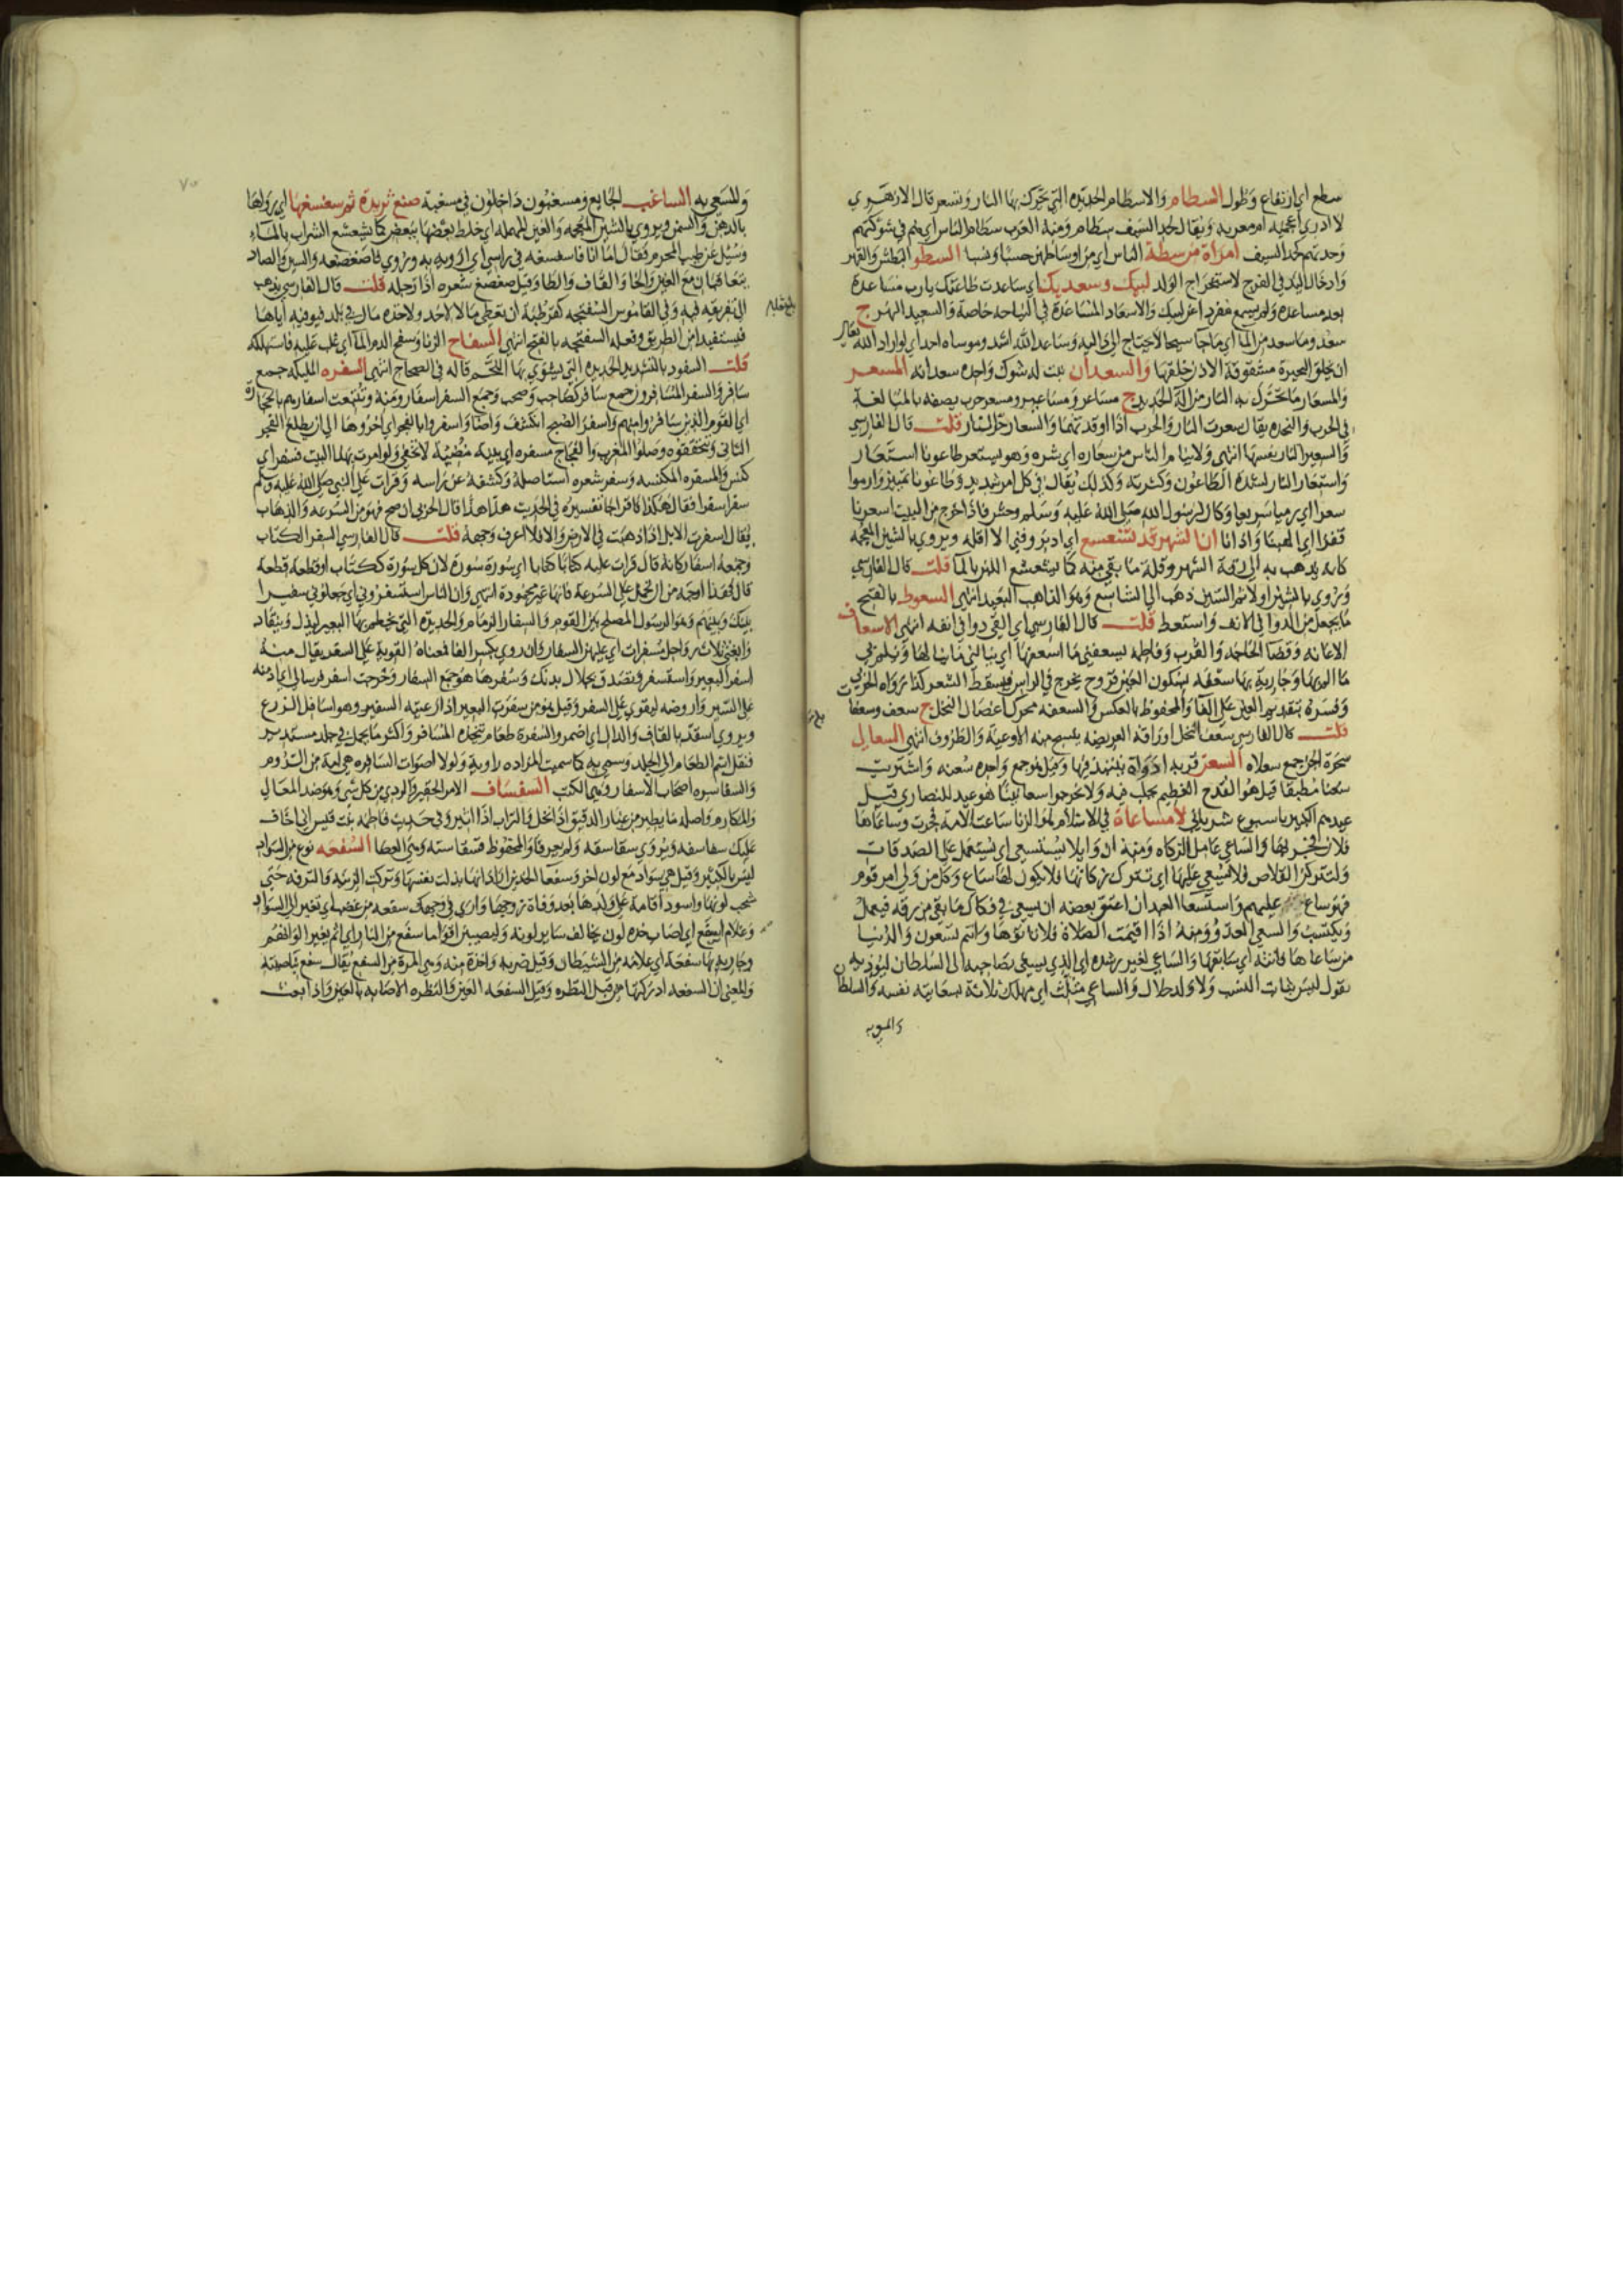 سطع اي ارتفاع وطول السطام والاسطام الحديده التي تحرك بها النار وتسعر قال الازهري
لا ادري اعجميه ام معربه ويقال لحد السيف سطام ومنه العرب سطام الناس اي هم في شوكتهم
وحدتهم كحد السيف امراة من سطة الناس اي من اوساطهن حسبا ونسبا السطو البطش والقهر
وادخال اليد في الفرج لاستخراج الولد لبيك وسعديك اي ساعدت طاعتك يا رب مساعدة
بعد مساعدة ولم يسمع مفرد اعن لبيك والاسعاد المساعدة في النياحه خاصة والسعيد النهر ج
سعد وما سعد من الما اي ما جا سيحا لا يحتاج الى داليه وساعد الله اشد وموساه احد اي لو اراد الله تعالى
ان يخلق البحيرة مشقوقة الاذن خلقها والسعدان نبت له شوك واحده سعدانه المسعر
والمسعار ما تحرك به النار من الة الحديد ج مساعر ومساعير ومسعر حرب يصفه بالمبالغة
في الحرب والنجده يقال سعرت النار والحرب اذا اوقدتهما والسعار حر النار قلت قال الفارسي
والسعير النار نفسها انتهى ولا ينام الناس من سعاره اي شره وهو يستعر طاعونا استعار
واستعار النار لشدة الطاعون وكثرته وكذلك يقال في كل امر شديد وطاعونا تمييز وارموا
سعرا اي رميا سريعا وكان لرسول الله صلى الله عليه وسلم وحش فاذا خرج من البيت اسعرنا
قفزا اي الهبنا واذانا ان الشهر قد تسعسع اي ادبر وفني الا اقله ويروي بالشين المعجمه
كانه يذهب به الى رقة الشهر وقلة ما بقي منه كما يشعشع اللبن بالما قلت قال الفارسي
ويروي بالشين اولا ثم السين ذهب الى الشاسع وهو الذاهب البعيد انتهى السعوط بالفتح
ما يجعل من الدوا في الانف واستعط قلت قال الفارسي اي القي دوا في انفه انتهى الاسعاف
الاعانه وقضا الحاجه والقرب وفاطمه يسعفني ما اسعفها اي ينالني ما ينالها ويلم بي
ما الم بها وجارية بها سعفه بسكون العين قروح يخرج في الراس ويسقط الشعر كذا رواه الحربي
وفسره بتقديم العين على الفا والمحفوظ بالعكس والسعفه محرك اغصان النخل ج سعف وسعفات
قلت قال الفارسي سعف النخل اوراقه العريضه ينسج منه الاوعية والظروف انتهى السعالى
سحرة الجن جمع سعلاه السعن قربه او اداوة ينتبذ فيها وقيل هو جمع واحده سعنه واشتريت
سعنا مطبقا قيل هو القدح العظيم يحلب فيه ولا تخرجوا سعانينا هو عيد للنصارى قبل
عيدهم الكبير باسبوع سرياني لا مساعاة في الاسلام هو الزنا ساعت الامة فجرت وساعاها
فلان فجر بها والساعي عامل الزكاه ومنه ان وايلا يستسعي اي يستعمل على الصدقات
ولتتركن القلاص فلا يسعى عليها اي تترك زكاتها فلا يكون لها ساع وكل من ولي امر قوم
فهو ساع عليهم واستسعا العبد ان اعتق بعضه ان يسعى في فكاك ما بقي من رقه فيعمل
ويكتسب والسعي العدو ومنه اذا اقيمت الصلاة فلا تاتوها وانتم تسعون والدنيا
من ساعاها فاتته اي سابقها والساعي لغير رشده اي الذي يسعى بصاحبه الى السلطان ليؤذيه
يقول ليس بثابت النسب ولا ولد حلال والساعي مثلث اي مهلك ثلاثة بسعايته نفسه والسلطان
والمسعي به الساغب الجايع ومسغبون داخلون في مسغبة صنع ثريدة ثم سغسغها اي رواها
بالدهن والسمن ويروي بالشين المعجمه والعين المهمله اي خلط بعضها ببعض كما يشعشع الشراب بالماء
وسئل عن طيب المحرم فقال اما انا فاسغسغه في راسي اي ارويه به وروي فاصغصغه والسين والصاد
يتعاقبان مع الغين والخا والقاف والطا وقيل صغصغ شعره اذا رجله قلت قال الفارسي يذهب
الى تفريقه فيه وفي القاموس السفتجه كقرطبة ان يعطي مالا لاحد وللاخذ مال في بلد فيوفيه اياها
فيستفيد امن الطريق وفعله السفتجه بالفتح انتهى السفاح الزنا وسفح الدم الما اي غلب عليه فاستهلكه
قلت السفود بالتشديد الحديده التي يشوي بها اللحم قاله في الصحاح انتهى السفره الملائكه جمع
سافر والسفر المسافرون جمع سافر كصاحب وصحب وجمع السفر اسفار ومنه وتتبعت اسفارهم بالحجارة
اي القوم الذين سافروا منهم واسفر الصبح انكشف واضا واسفروا بالفجر اي اخروها الى ان يطلع الفجر
الثاني وتتحققوه وصلوا المغرب والفجاج مسفره اي بينة مضيئة لا تخفى ولو امرت بهذا البيت فسفر اي
كنس والمسفره المكنسه وسفر شعره استاصله وكشفه عن راسه وقرات على النبي صلى الله عليه وسلم
سفرا سفرا فقال هكذا فاقرا جا تفسيره في الحديث هذا هذا قال الحربي ان صح فهو من السرعه والذهاب
يقال اسفرت الابل اذا ذهبت في الارض والا فلا اعرف وجهه قلت قال الفارسي السفر الكتاب
وجمعه اسفار كانه قال قرات عليه كتابا كتابا اي سورة سورة لان كل سورة ككتاب او قطعه قطعه
قال فهذا اوجه من ان تحمل على السرعة فانها غير محمودة انتهى وان الناس استسفروني اي جعلوني سفيرا
بينك وبينهم وهو الرسول المصلح بين القوم والسفار الزمام والحديدة التي يخطم بها البعير ليذل وينقاد
وابغني ثلاث رواحل مسفرات اي عليهن السفار وان روي بكسر الفا فمعناه القوية على السفر يقال منه
اسفر البعير واستسفر وتصدق بجلال بدنك وسفرها هو جمع السفار وخرجت اسفر فرسا لي اي ادمنه
على السير واروضه ليقوي على السفر وقيل هو من سفرت البعير اذا رعيته السفير وهو اسافل الزرع
ويروي اسقد بالقاف والدال اي اضمر والسفرة طعام تتخذه المسافر واكثر ما يحمل في جلد مستدير
فنقل اسم الطعام الى الجلد وسمي به كما سميت المزاده راوية ولولا اصوات السافره هي امة من الروم
والسفاسره اصحاب الاسفار وهي الكتب السفساف الامر الحقير والردي من كل شي وهو ضد المعالي
والمكارم واصله ما يطير من غبار الدقيق اذا نخل والتراب اذا اثير وفي حديث فاطمه بنت قيس اني اخاف
عليك سفاسفه ويروي سقاسقه ولم يعرفا والمحفوظ قسقاسته وهي العصا السفعه نوع من السواد
ليس بالكثير وقيل هي سواد مع لون اخر وسفعا الخدين اراد انها بذلت نفسها وتركت الزينه والترفه حتى
شحب لونها واسود اقامة على ولدها بعد وفاة زوجها وارى في وجهك سفعه من غضب اي تغير الى السواد
وغلام اسفع اي اصاب خده لون يخالف ساير لونه وليصيبن اقواما سفع من النار اي اثم يغير الوانهم
وجاريه بها سفعه اي علامه من الشيطان وقيل ضربه واحدة منه وهي المرة من السفع يقال سفع بناصيته
والمعنى ان السفعه ادركتها من قبل النظره وقيل السفعه العين والنظره الاصابه بالعين واذا بعث